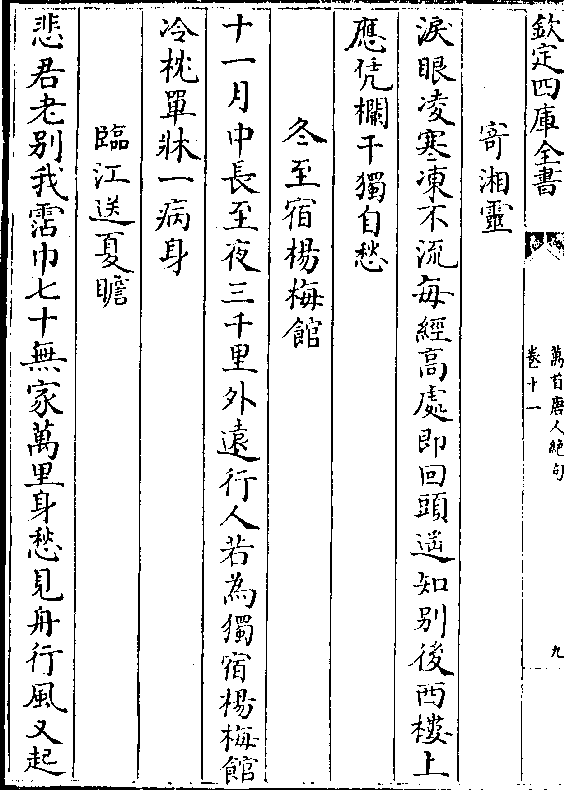 欽定四庫全書
萬首唐人絶句
卷十一
九
寄湘靈
淚眼凌寒凍不流每經高處即回頭遥知别後西樓上
應凭欄干獨自愁
冬至宿楊梅館
十一月中長至夜三千里外遠行人若為獨宿楊梅館
冷枕單牀一病身
臨江送夏瞻
悲君老别我霑巾七十無家萬里身愁見舟行風又起